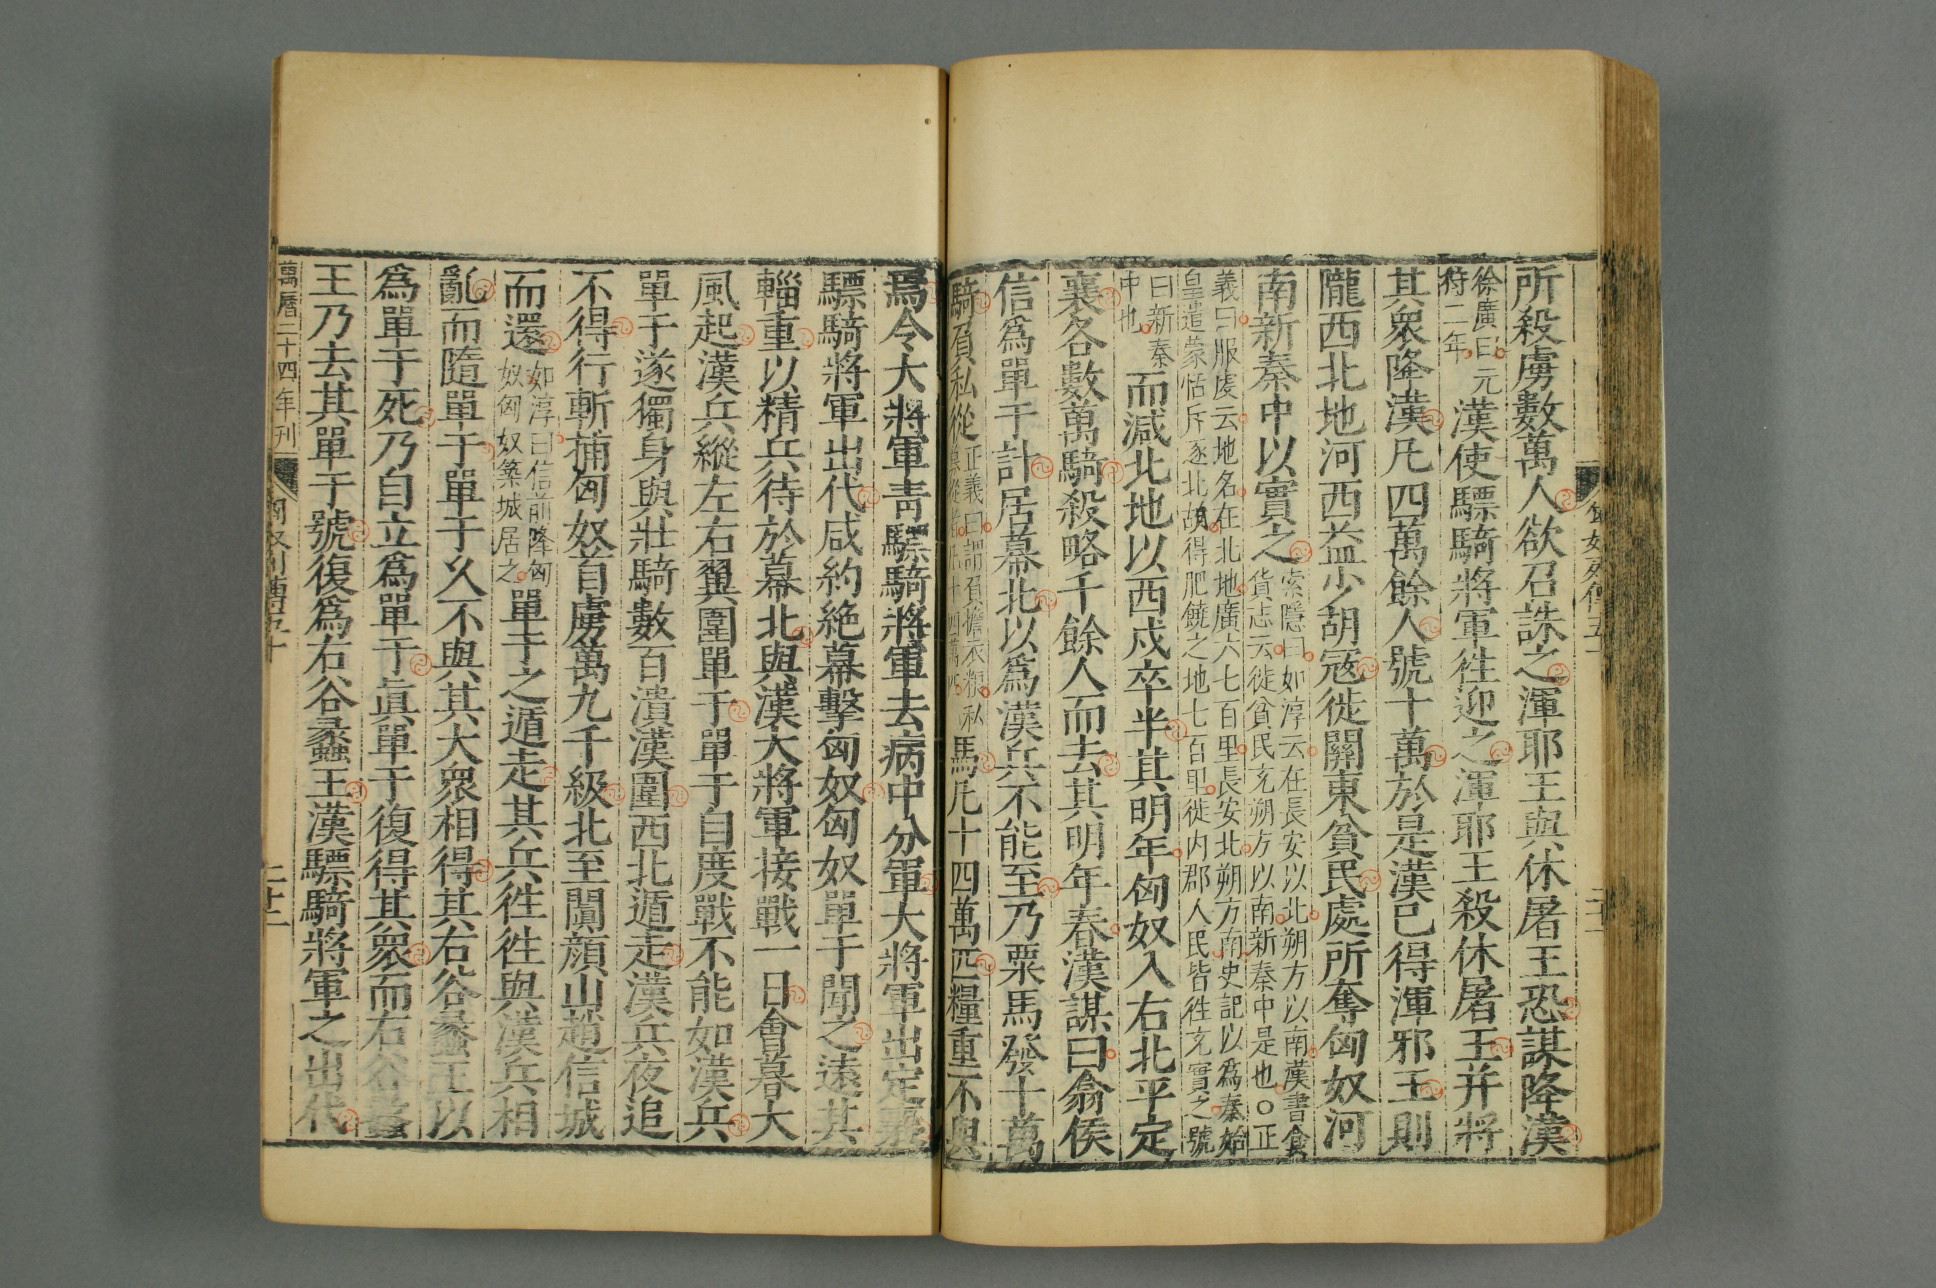 匈奴列傳五十
二十二
所殺虜數萬人欲召誅之渾耶王與休屠王恐謀降漢
徐廣曰元
狩二年
漢使驃騎將軍徃迎之渾耶王殺休屠王并將
其衆降漢凡四萬餘人號十萬於是漢已得渾邪王則
隴西北地河西益少胡寇徙關東貧民處所奪匈奴河
南新秦中以實之
索隱曰如淳云在長安以北朔方以南漢書食
貨志云徙貧民充朔方以南新秦中是也○正
義曰服虔云地名在北地廣六七百里長安北朔方南史記以爲秦始
皇遣蒙恬斥逐北胡得肥饒之地七百里徙内郡人民皆徃充實之號
曰新秦
中也
而減北地以西戍卒半其明年匈奴入右北平定
襄各數萬騎殺略千餘人而去其明年春漢謀曰翕侯
信爲單于計居幕北以爲漢兵不能至乃粟馬發十萬
騎負私從
正義曰謂負擔衣粮私
馬凡十四萬匹糧重不與
焉令大將軍青驃騎將軍去病中分軍大將軍出定襄
驃騎將軍出代咸約絶幕擊匈奴匈奴單于聞之遠其
輜重以精兵待於幕北與漢大將軍接戰一日會暮大
風起漢兵縱左右翼圍單于單于自度戰不能如漢兵
單于遂獨身與壯騎數百潰漢圍西北遁走漢兵夜追
不得行斬捕匈奴首虜萬九千級北至闐顏山趙信城
而還
如淳曰信前降匈
奴匈奴築城居之
單于之遁走其兵徃徃與漢兵相
亂而隨單于單于久不與其大衆相得其右谷蠡王以
爲單于死乃自立爲單于真單于復得其衆而右谷蠡
王乃去其單于號復爲右谷蠡王漢驃騎將軍之出代
萬曆二十四年刊
匈奴列傳五十
二十二